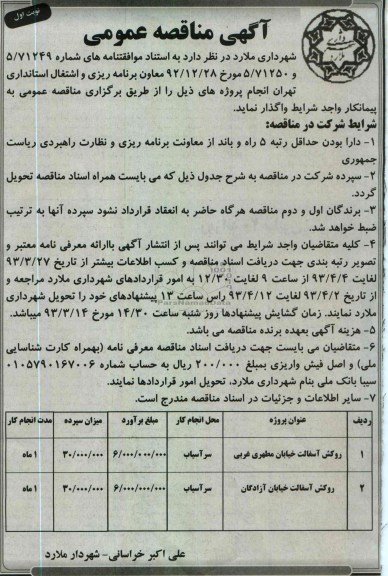 نوبت اول
آگهی مناقصه عمومی
شهرداری ملارد در نظر دارد به استناد موافقتنامه های شماره ۵/۷۱۲۴۹
و ۵/۷۱۲۵۰ مورخ ۹۲/۱۲/۲۸ معاون برنامه ریزی و اشتغال استانداری
تهران انجام پروژه های ذیل را از طریق برگزاری مناقصه عمومی به
پیمانکار واجد شرایط واگذار نماید.
شرایط شرکت در مناقصه:
۱- دارا بودن حداقل رتبه ۵ راه و باند از معاونت برنامه ریزی و نظارت راهبردی ریاست
جمهوری
۲- سپرده شرکت در مناقصه به شرح جدول ذیل که می بایست همراه اسناد مناقصه تحویل
گردد.
۳- برندگان اول و دوم مناقصه هرگاه حاضر به انعقاد قرارداد نشود سپرده آنها به ترتیب
ضبط خواهد شد.
۴- کلیه متقاضیان واجد شرایط می توانند پس از انتشار آگهی باارائه معرفی نامه معتبر و
تصویر رتبه بندی جهت دریافت اسناد مناقصه و کسب اطلاعات بیشتر از تاریخ ۹۳/۳/۲۷
لغایت ۹۳/۴/۴ از ساعت ۹ لغایت ۱۲/۳۰ به امور قراردادهای شهرداری ملارد مراجعه و
از تاریخ ۹۳/۴/۲ لغایت ۹۳/۴/۱۲ راس ساعت ۱۳ پیشنهادهای خود را تحویل شهرداری
ملارد نمایند. زمان گشایش پیشنهادها روز شنبه ساعت ۱۴/۳۰ مورخ ۹۳/۳/۱۴ میباشد.
۵- هزینه آگهی بعهده برنده مناقصه می باشد.
۶- متقاضیان می بایست جهت دریافت اسناد مناقصه معرفی نامه (بهمراه کارت شناسایی
ملی) و اصل فیش واریزی بمبلغ ۲۰۰/۰۰۰ ریال به حساب شماره ۰۱۰۵۷۹۰۱۶۷۰۰۶
سیبا بانک ملی بنام شهرداری ملارد، تحویل امور قراردادها نمایند.
۷- سایر اطلاعات و جزئیات در اسناد مناقصه مندرج است.
ردیف عنوان پروژه محل انجام کار مبلغ برآورد میزان سپرده مدت انجام کار
۱ روکش آسفالت خیابان مطهری غربی سرآسیاب ۶/۰۰۰/۰۰۰/۰۰۰ ۳۰/۰۰۰/۰۰۰ ۱ماه
۲ روکش آسفالت خیابان آزادگان سرآسیاب ۶/۰۰۰/۰۰۰/۰۰۰ ۳۰/۰۰۰/۰۰۰ ۱ماه
علی اکبر خراسانی- شهردار ملارد